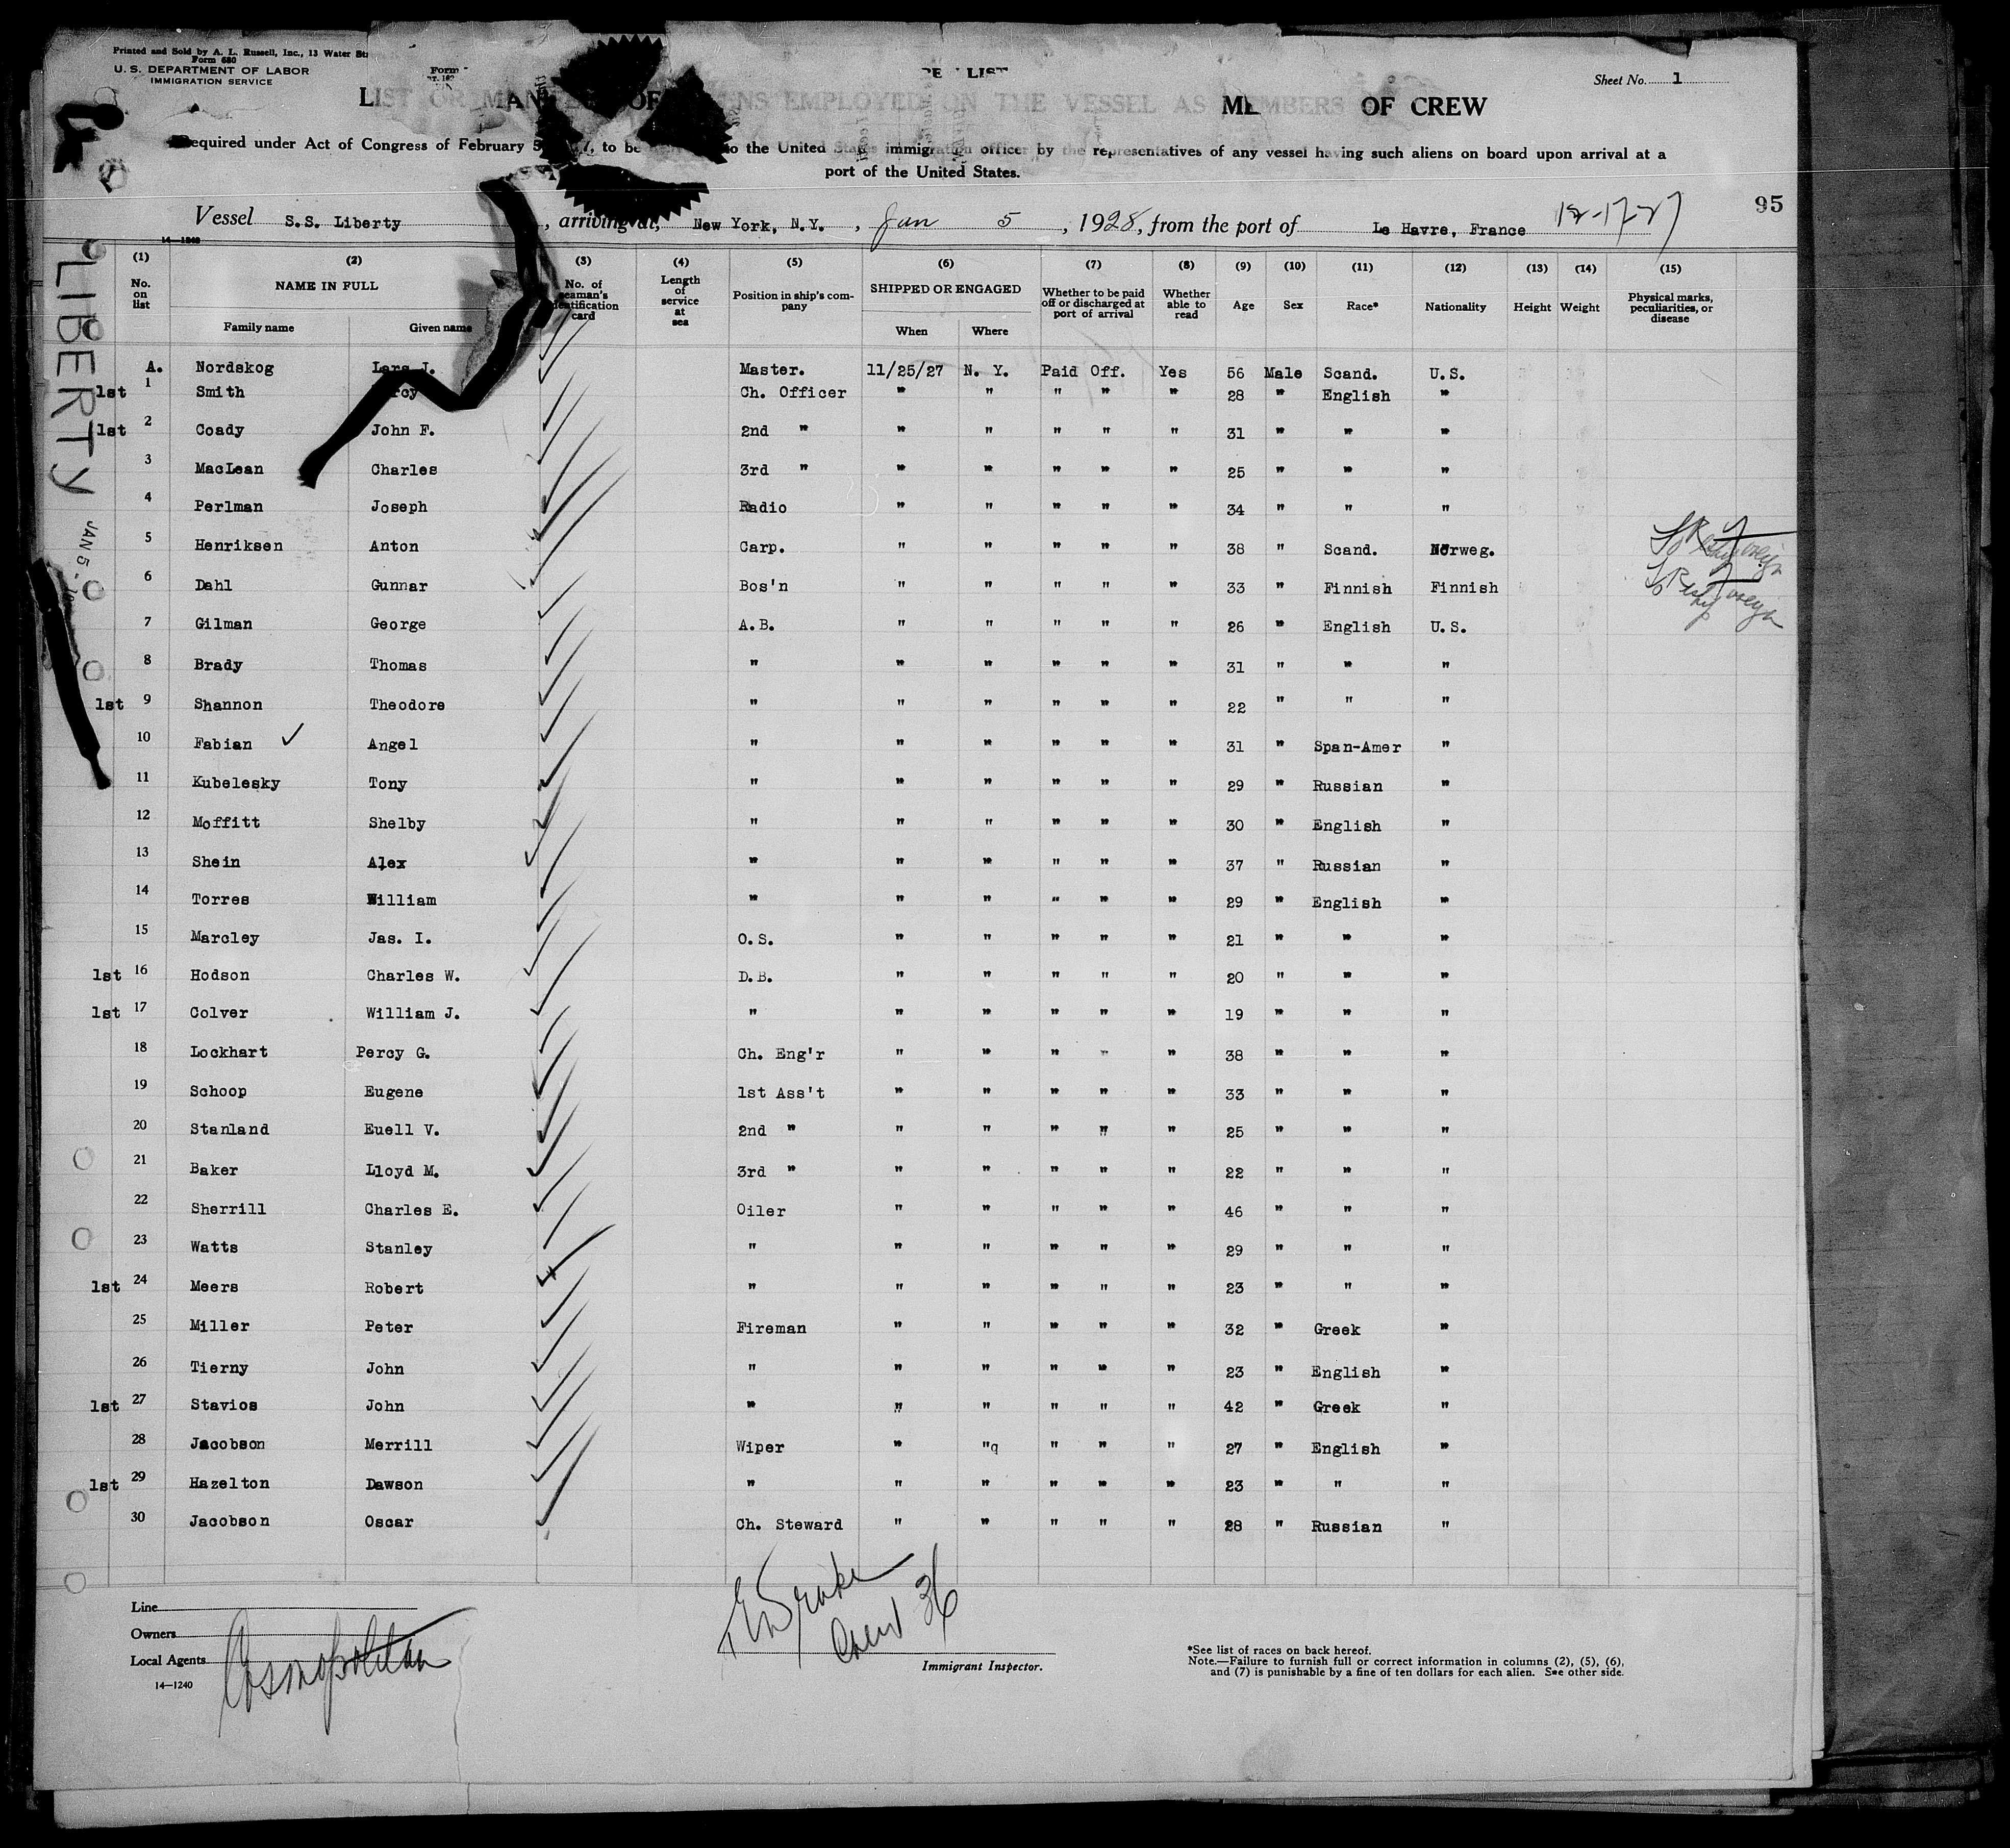 Printed and Sold by A. L. Russell, Inc., 13 Water
Form 680
U. S. DEPARTMENT OF LABOR
IMMIGRATION SERVICE
Form
LIST
Sheet No. 1
LIST OR MAN OF ENS EMPLOYED ON THE VESSEL AS MEMBERS OF CREW
Required under Act of Congress of February 5, to be to the United States immigration officer by the representatives of any vessel having such aliens on board upon arrival at a
port of the United States.
95
Vessel S.S. Liberty, arriving at, New York, N.Y., Jan 5, 1928, from the port of Le Havre, France 12-17-27
14-1240
LIBERTY
JAN 5
(1) (2) (3) (4) (5) (6) (7) (8) (9) (10) (11) (12) (13) (14) (15)
No. on list NAME IN FULL Family name Given name No. of seaman's identification card Length of service at sea Position in ship's company SHIPPED OR ENGAGED When Where Whether to be paid off or discharged at port of arrival Whether able to read Age Sex Race* Nationality Height Weight Physical marks, peculiarities, or disease
A. Nordskog Lars J. Master. 11/25/27 N. Y. Paid Off. Yes 56 Male Scand. U.S.
1st 1 Smith rcy Ch. Officer " " " " " 28 " English "
1st 2 Coady John F. 2nd " " " " " " 31 " " "
3 MacLean Charles 3rd " " " " " " 25 " " "
4 Perlman Joseph Radio " " " " " 34 " " "
5 Henriksen Anton Carp. " " " " " 38 " Scand. Norweg. To Reship foreign
6 Dahl Gunnar Bos'n " " " " " 33 " Finnish Finnish To Reship foreign
7 Gilman George A.B. " " " " " 26 " English U.S.
8 Brady Thomas " " " " " " 31 " " "
1st 9 Shannon Theodore " " " " " " 22 " " "
10 Fabian ✓ Angel " " " " " " 31 " Span-Amer "
11 Kubelesky Tony " " " " " " 29 " Russian "
12 Moffitt Shelby " " " " " " 30 " English "
13 Shein Alex " " " " " " 37 " Russian "
14 Torres William " " " " " " 29 " English "
15 Marcley Jas. I. O.S. " " " " " 21 " " "
1st 16 Hodson Charles W. D.B. " " " " " 20 " " "
1st 17 Colver William J. " " " " " " 19 " " "
18 Lockhart Percy G. Ch. Eng'r " " " " " 38 " " "
19 Schoop Eugene 1st Ass't " " " " " 33 " " "
20 Stanland Euell V. 2nd " " " " " " 25 " " "
21 Baker Lloyd M. 3rd " " " " " " 22 " " "
22 Sherrill Charles E. Oiler " " " " " 46 " " "
23 Watts Stanley " " " " " " 29 " " "
1st 24 Meers Robert " " " " " " 23 " " "
25 Miller Peter Fireman " " " " " 32 " Greek "
26 Tierny John " " " " " " 23 " English "
1st 27 Stavios John " " " " " " 42 " Greek "
28 Jacobson Merrill Wiper " "q " " " 27 " English "
1st 29 Hazelton Dawson " " " " " " 23 " " "
30 Jacobson Oscar Ch. Steward " " " " " 28 " Russian "
Line
Owners
Local Agents Cosmopolitan
14—1240
Drake
36
Immigrant Inspector.
*See list of races on back hereof.
Note.—Failure to furnish full or correct information in columns (2), (5), (6),
and (7) is punishable by a fine of ten dollars for each alien. See other side.